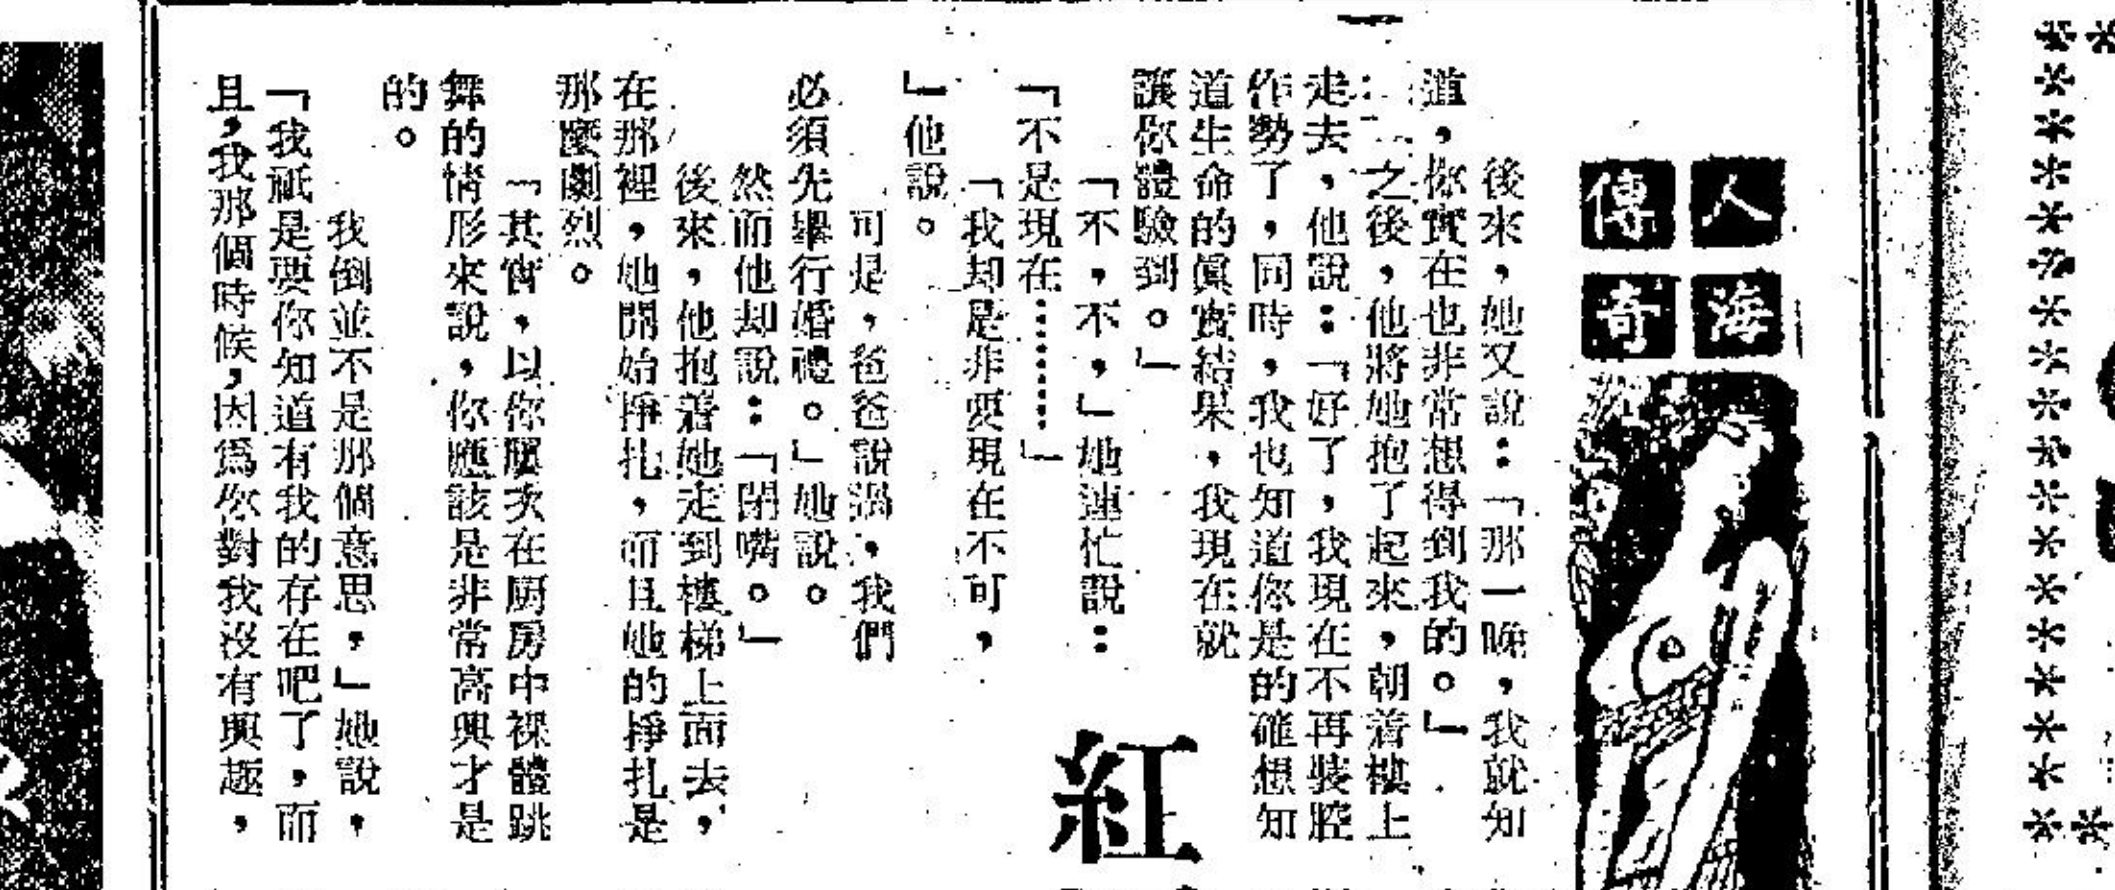 人海
傳奇
後來，她又說：「那一晚，我就知
道，你實在也非常想得到我的。」
之後，他將她抱了起來，朝着樓上
走去，他說：「好了，我現在不再裝腔
作勢了，同時，我也知道你是的確想知
道生命的眞實結果，我現在就
讓你體驗到。」
「不，不，」她連忙說：
「不是現在………」
「我却是非要現在不可，
」他說。
可是，爸爸說過，我們
必須先舉行婚禮。」她說。
然而他却說：「閉嘴。」
後來，他抱着她走到樓梯上面去，
在那裡，她開始掙扎，而且她的掙扎是
那麼劇烈。
「其實，以你屢次在厨房中裸體跳
舞的情形來說，你應該是非常高興才是
的。
我倒並不是那個意思，」她說，
「我祗是要你知道有我的存在吧了，而
且，我那個時候，因爲你對我沒有興趣，
紅